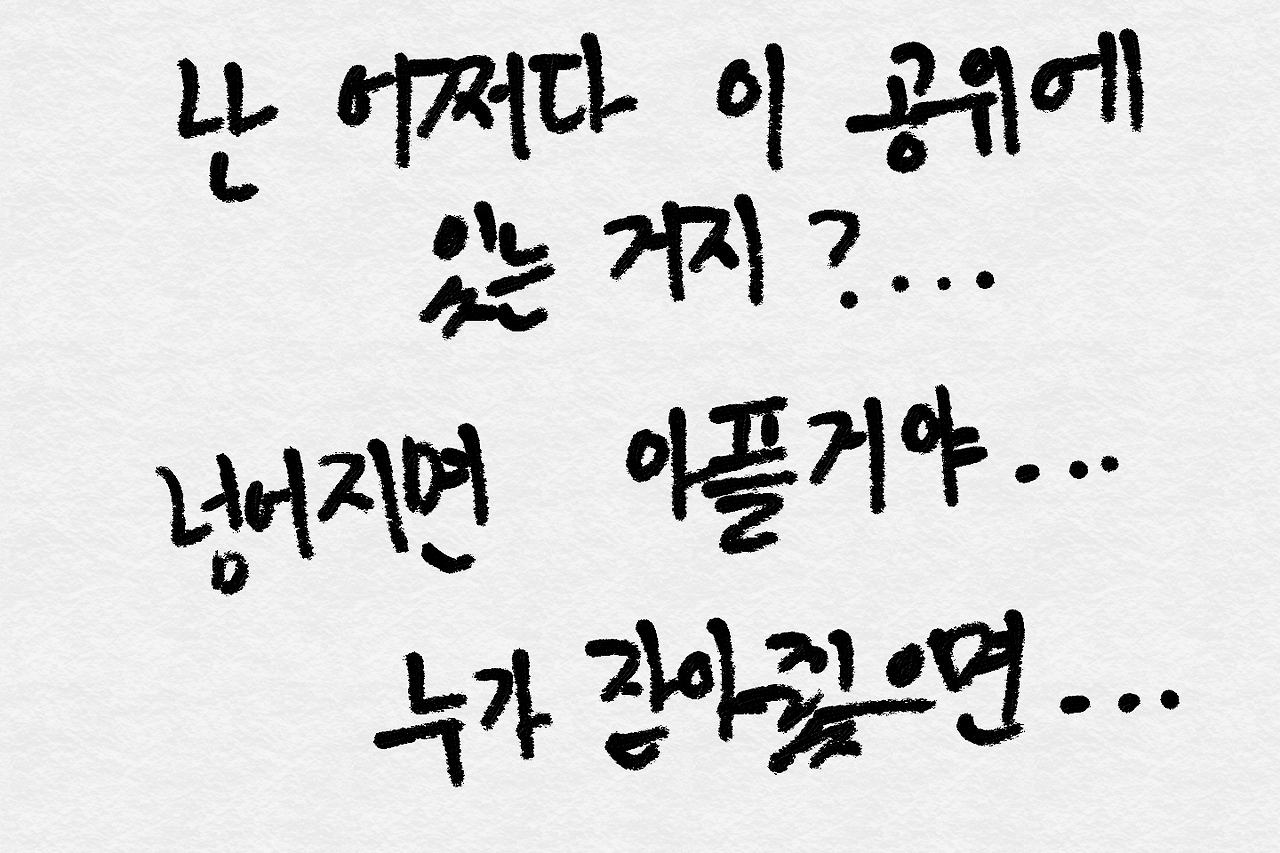 난 어쩌다 이 공위에
있는 거지?...
넘어지면 아플거야...
누가 잡아줬으면...